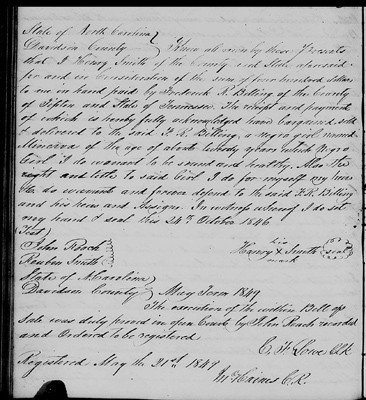 State of North Carolina
Davidson County } Know all men by these Presents
that I Henry Smith of the County and State aforesaid
for and in Consideration of the sum of four hundred dollars
to me in hand paid by Frederick R Billing of the County
of Tipton and State of Tennessee. The receipt and payment
of which is hereby fully acknowledged have bargained sold
& delivered to the said F R Billing, a negro girl named
Minerva of the age of about twenty years which Negro
Girl I do warrant to be sound and healthy. Also The
right and title to said Girl I do for myself my heirs
&c do warrant and forever defend to the said F.R. Billing
and his heirs and assigns. In witness whereof I do set
my hand & seal this 24th October 1846
Test
John Roach
Reuben Smith
his
Henry X Smith seal
mark
State of N Carolina
Davidson County } May Term 1849
The execution of the within Bill of
Sale was duly proved in open Court by John Roach
and Ordered to be registered
C. F. Lowe Clk
Registered May the 21st 1849